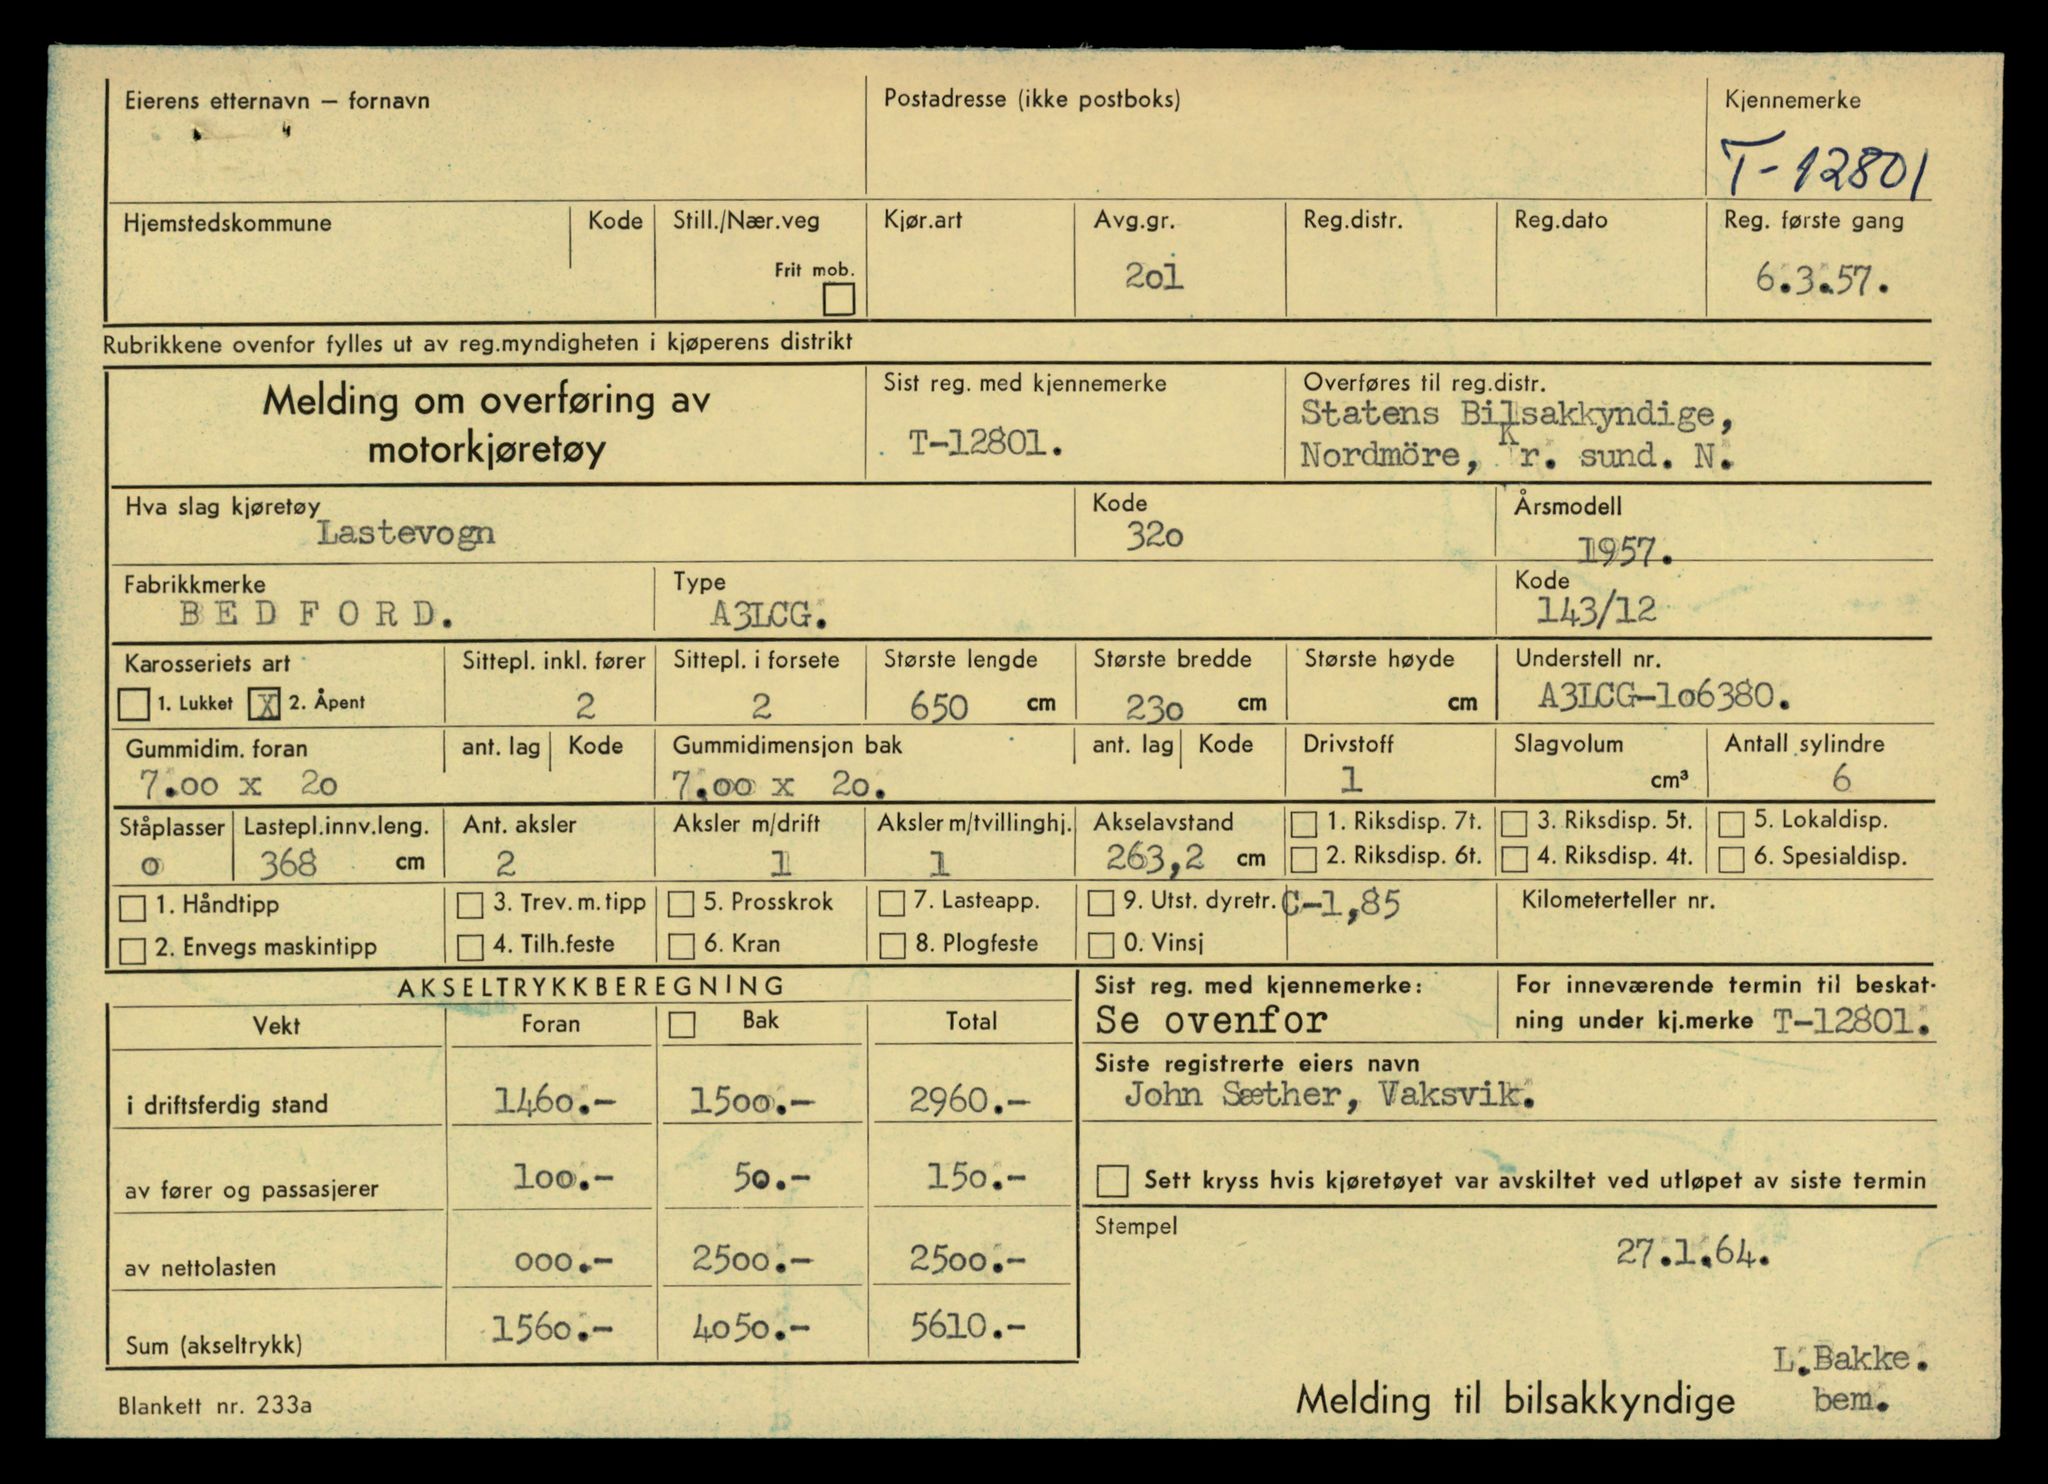 Eierens etternavn – fornavn
Postadresse (ikke postboks)
Kjennemerke
T-12801
Hjemstedskommune
Kode
Still./Nær.veg
Frit mob.
Kjør.art
Avg.gr.
2o1
Reg.distr.
Reg.dato
Reg. første gang
6.3.57.
Rubrikkene ovenfor fylles ut av reg.myndigheten i kjøperens distrikt
Melding om overføring av
motorkjøretøy
Sist reg. med kjennemerke
T-12801.
Overføres til reg.distr.
Statens Bilsakkyndige,
Nordmöre, Kr. sund. N.
Hva slag kjøretøy
Lastevogn
Kode
32o
Årsmodell
1957.
Fabrikkmerke
B E D F O R D.
Type
A3LCG.
Kode
143/12
Karosseriets art
1. Lukket X 2. Åpent
Sittepl. inkl. fører
2
Sittepl. i forsete
2
Største lengde
650 cm
Største bredde
23o cm
Største høyde
cm
Understell nr.
A3LCG-1o6380.
Gummidim. foran
7.oo x 2o
ant. lag
Kode
Gummidimensjon bak
7.oo x 2o.
ant. lag
Kode
Drivstoff
1
Slagvolum
cm³
Antall sylindre
6
Ståplasser
o
Lastepl.innv.leng.
368 cm
Ant. aksler
2
Aksler m/drift
1
Aksler m/tvillinghj.
1
Akselavstand
263,2 cm
1. Riksdisp. 7t.
2. Riksdisp. 6t.
3. Riksdisp. 5t.
4. Riksdisp. 4t.
5. Lokaldisp.
6. Spesialdisp.
1. Håndtipp
2. Envegs maskintipp
3. Trev. m. tipp
4. Tilh.feste
5. Prosskrok
6. Kran
7. Lasteapp.
8. Plogfeste
9. Utst. dyretr.
0. Vinsj
C-1,85
Kilometerteller nr.
AKSELTRYKKBEREGNING
Vekt Foran Bak Total
i driftsferdig stand 146o.- 15oo.- 2960.-
av fører og passasjerer 1oo.- 5o.- 15o.-
av nettolasten ooo.- 25oo.- 25oo.-
Sum (akseltrykk) 156o.- 4o5o.- 5610.-
Sist reg. med kjennemerke:
Se ovenfor
For inneværende termin til beskat-
ning under kj.merke T-12801.
Siste registrerte eiers navn
John Sæther, Vaksvik.
Sett kryss hvis kjøretøyet var avskiltet ved utløpet av siste termin
Stempel
27.1.64.
L.Bakke.
bem.
Blankett nr. 233a
Melding til bilsakkyndige